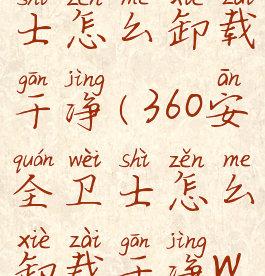 shì zěn me xiè zài
士怎么卸载
gān jìng ān
干净(360安
quán wèi shì zěn me
全卫士怎么
xiè zài gān jìng
卸载干净w